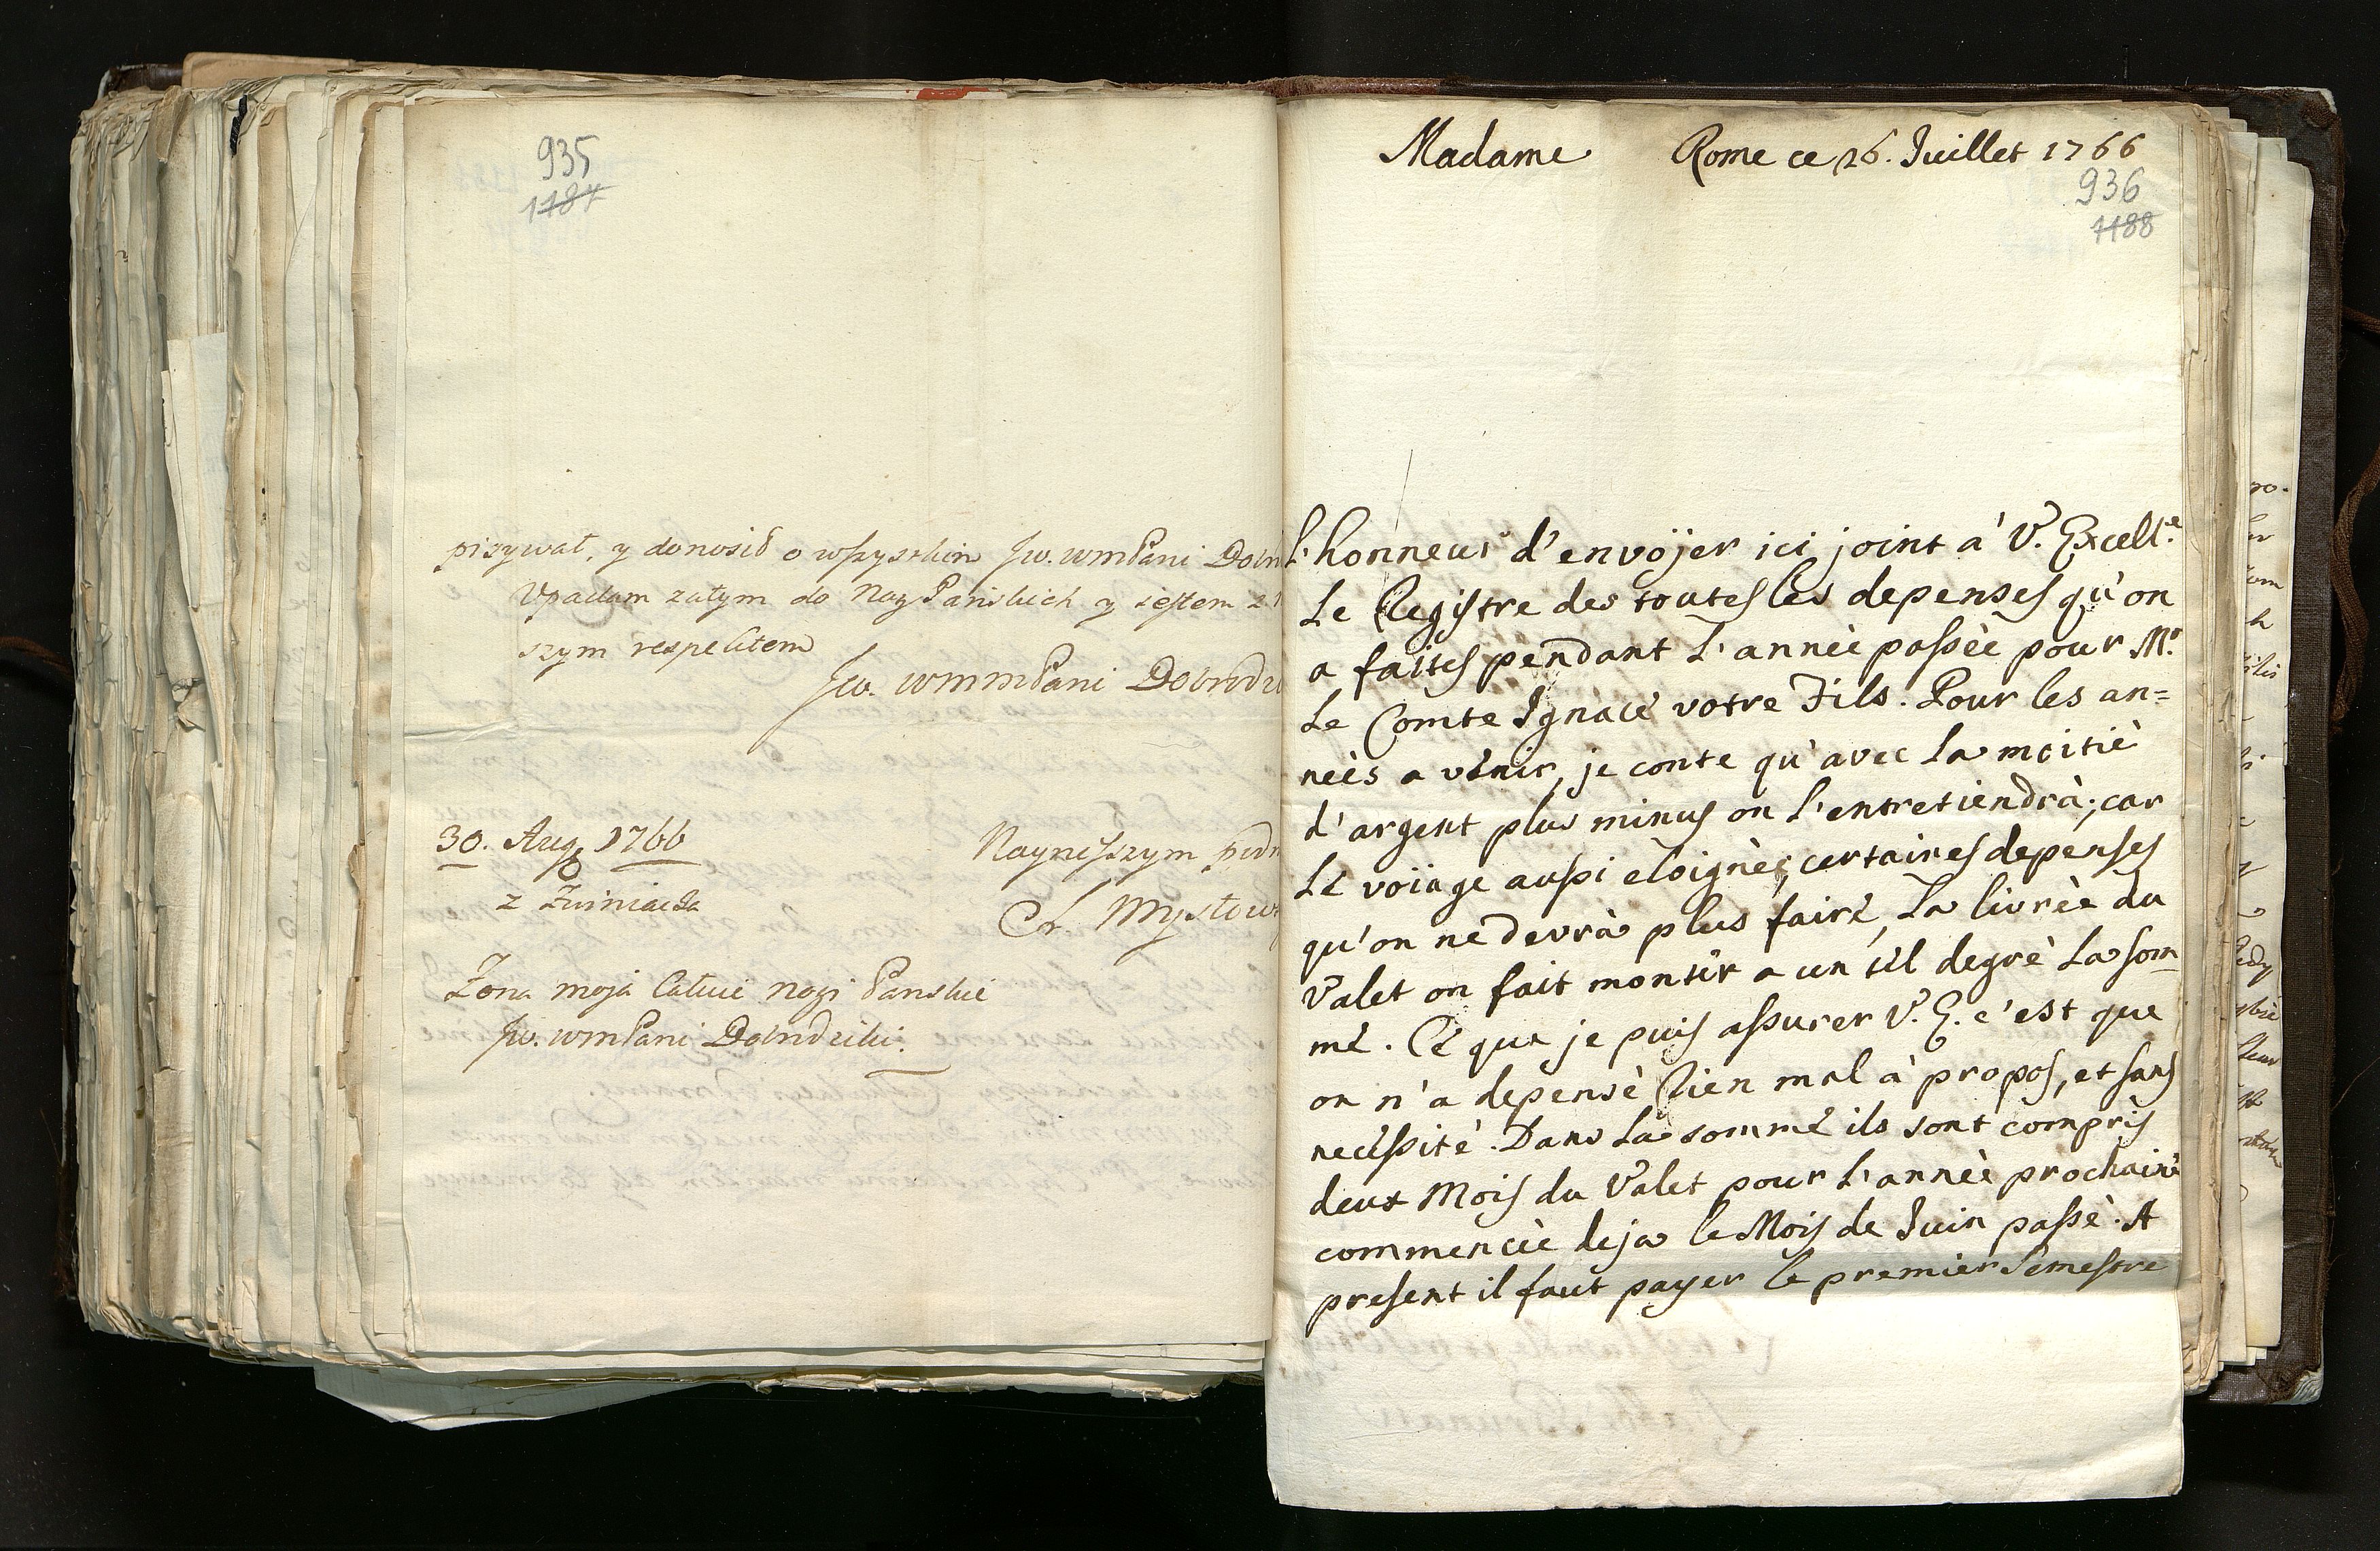 935
1187
pisywał, y donosić o wszyskim Jw. wmPani Dobr
Upadam zatym do Nog Pańskich y jestem z
szym respektem
Jw. wmmPani Dobrodzi
30. Aug. 1766
z
Nayniższym podn
Ch.
Żona moja całuie nogi Pańskie
Jw. wmPani Dobrodziki.
Madame Rome ce 26. Juillet 1766
936
1188
L'honneur d'envöjer ici joint à V. Excell.e
Le Registre des toutes les depenses qu'on
a faites pendant L'annèe passèe pour Mr.
Le Comte Ignace votre Fils. Pour les an=
neès a venir, je conte qu'avec La moitiè
d'argent plus minus on L'entretiendrà; car
Le voiage aussi eloignè, certaines depenses
qu'on ne devrà plus faire, La livrèe du
Valet on fait montèr a un tèl degrè La som=
me. Ce que je puis assurer V. E. c'est que
on n'a depensè Rien mal à propos, et sans
necessitè. Dans La somme ils sont compris
deux Mois du Valet pour L'annèe prochaine
commencèe deja le Mois de Juin passè. A
present il faut payer le premier Semestre